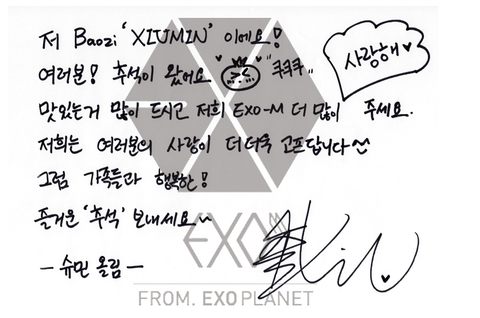 저 Baozi 'XIUMIN' 이에요!
사랑해♥
여러분! 추석이 왔어요 "쿡쿡쿡"
맛있는거 많이 드시고 저희 EXO-M 더 많이 주세요.
저희는 여러분의 사랑이 더더욱 고프답니다^^
그럼 가족들과 행복한!
즐거운 '추석' 보내세요~
EXO
- 슈민 올림 -
FROM. EXOPLANET